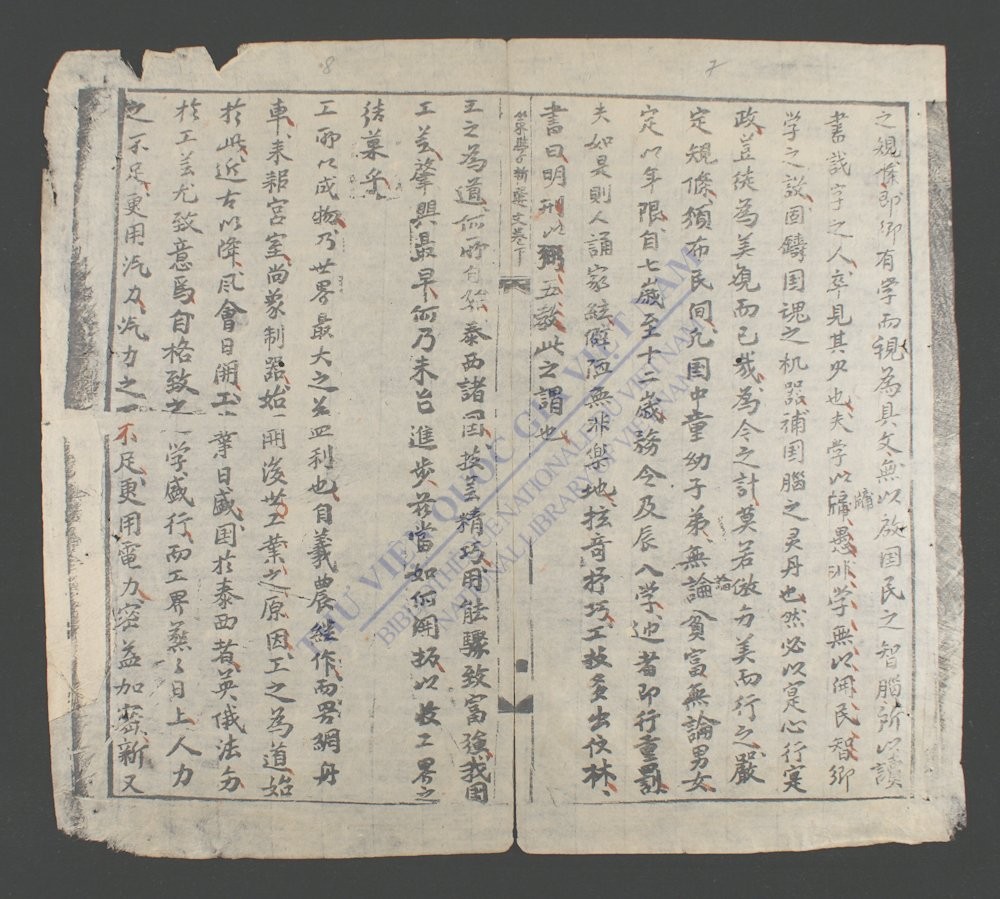 之規條即鄉有学而視為具文無以啟国民之智腦所以讀
書識字之人卒見其少也夫学以牖愚非学無以開民智鄉
牖
学之設固鑄国魂之机器補国腦之灵丹也然必以寔心行寔
政豈徒為美觀而已哉為今之計莫若倣匀美而行之嚴
定規條頒布民间凢国中童幼子弟無論貧富無論男女
論
定以年限自七歲至十二歲務令及辰入学迯者即行重罰
夫如是則人誦家絃僻陋無非樂地抎奇抒巧工技多出仗林
書曰明刑以弼五教此之謂也
策學新選文卷下
工之為道何所自始泰西諸国技芸精巧用能驟致富強我国
工芸肇興最早何乃未台進步茲當如何開拓以收工界之
结菓乎
工所以成物乃世界最大之公益利也自羲農継作而罟網舟
車耒耜宮室尚象制器始開後世工業之原因工之為道始
於此近古以降風會日開工業日盛国於泰西者英俄法匀
於工芸尤致意焉自格致之学盛行而工界蒸〻日上人力
之不足更用汽力汽力之不足更用電力密益加密新又
7
8
THƯ VIỆN QUỐC GIA VIỆT NAM
BIBLIOTHÈQUE NATIONALE DU VIETNAM
NATIONAL LIBRARY OF VIETNAM